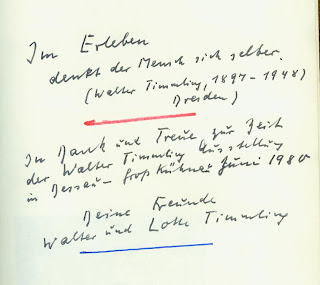 Im Erleben
denkt der Mensch sich selber.
(Walter Timmling, 1897-1948)
Dresden)
In Dank und Treue, zur Zeit
der Walter Timmling Ausstellung
in Dessau-Großkühnau Juni 1980
Deine Freunde
Walter und Lotte Timmling